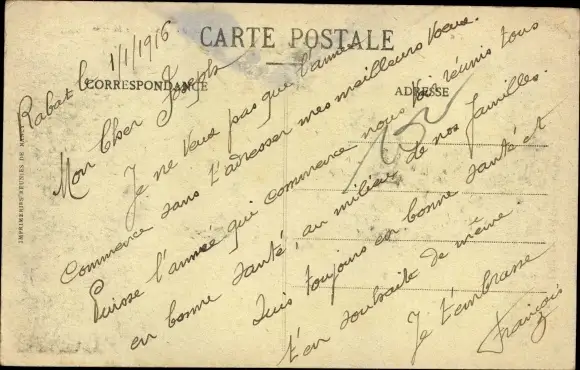 CARTE POSTALE
CORRESPONDANCE
ADRESSE
Rabat le 1/1/1916
Mon Cher Joseph
Je ne veux pas que l'année
commence sans t'adresser mes meilleurs voeux.
Puisse l'année qui commence nous voir réunis tous
en bonne santé, au milieu de nos familles.
Suis toujours en bonne santé et
t'en souhaite de même
Je t'embrasse
François
15
IMPRIMERIES REUNIES DE